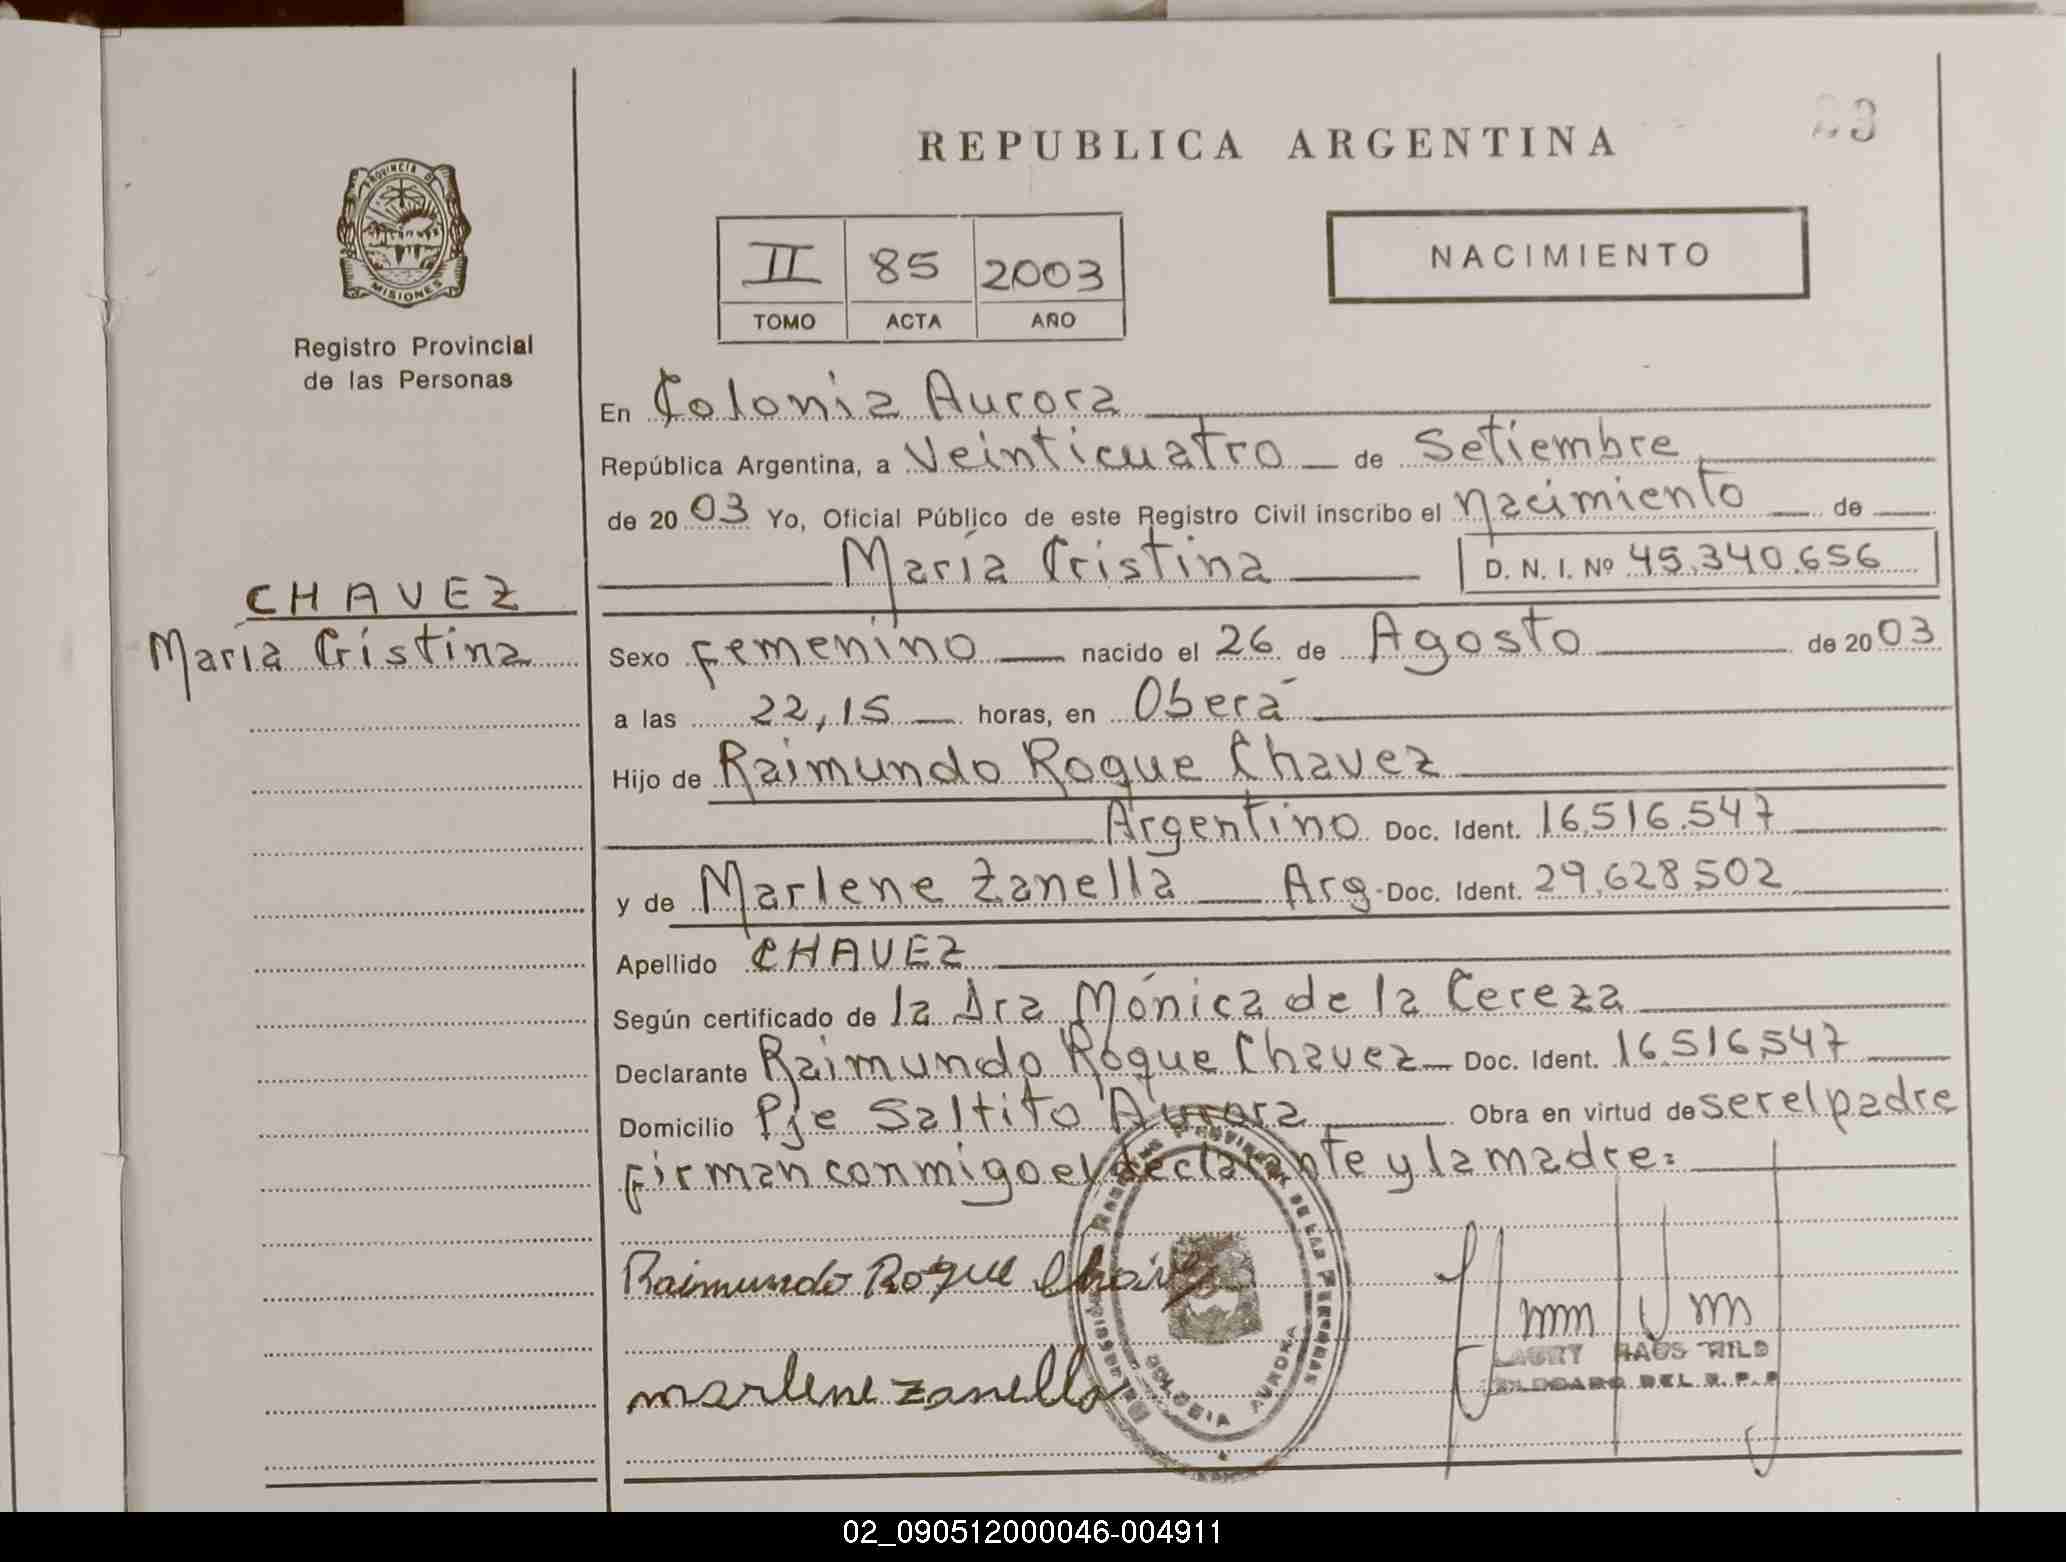 REPUBLICA ARGENTINA
23
PROVINCIA DE
MISIONES
Registro Provincial
de las Personas
II 85 2003
TOMO ACTA AÑO
NACIMIENTO
En Colonia Aurora
República Argentina, a Veinticuatro de Setiembre
de 2003 Yo, Oficial Público de este Registro Civil inscribo el nacimiento de
María Cristina D. N. I. Nº 45.340.656
CHAVEZ
María Cristina
Sexo Femenino nacido el 26 de Agosto de 2003
a las 22,15 horas, en Oberá
Hijo de Raimundo Roque Chavez
Argentino Doc. Ident. 16.516.547
y de Marlene Zanella Arg. Doc. Ident. 29.628.502
Apellido CHAVEZ
Según certificado de la Dra Mónica de la Cereza
Declarante Raimundo Roque Chavez Doc. Ident. 16.516.547
Domicilio Pje Saltito Aurora Obra en virtud de ser el padre
Firman conmigo el declarante y la madre:
Raimundo Roque Chavez
marlene zanella
REGISTRO PROVINCIAL DE LAS PERSONAS
MISIONES
COLONIA AURORA
WILD
DEL R.P.P
02_090512000046-004911